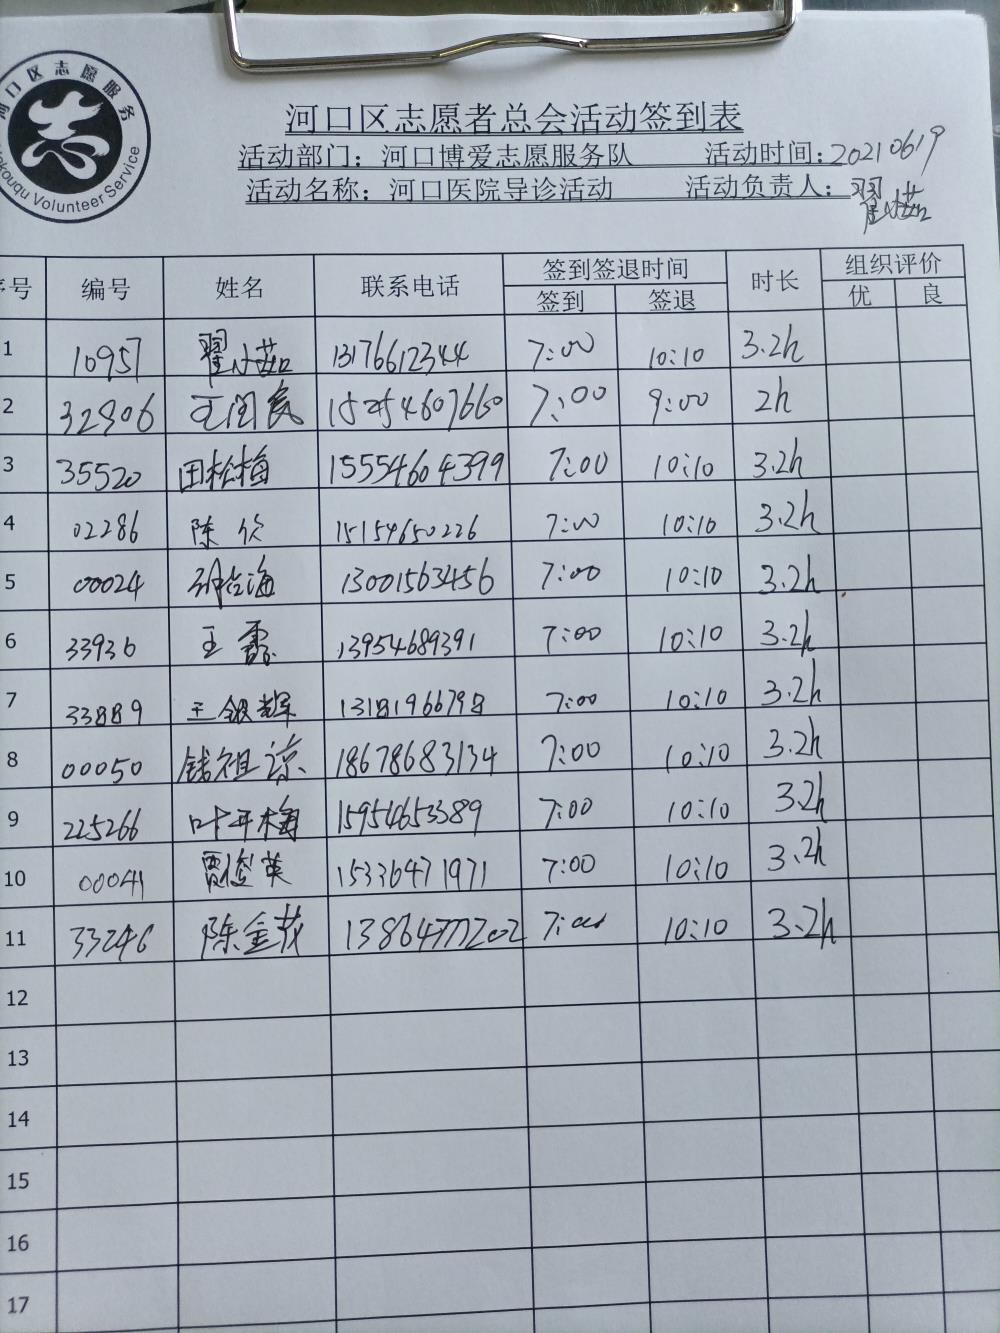 河口区志愿服务
Hekouqu Volunteer Service
河口区志愿者总会活动签到表
活动部门：河口博爱志愿服务队 活动时间：20210619
活动名称：河口医院导诊活动 活动负责人：翟小茹
序号 编号 姓名 联系电话 签到签退时间 时长 组织评价
签到 签退 优 良
1 10957 翟小茹 13176612344 7:00 10:10 3.2h
2 32906 王闰良 15254607660 7:00 9:00 2h
3 35520 田松梅 15554604399 7:00 10:10 3.2h
4 02286 陈 15154650226 7:00 10:10 3.2h
5 00024 海 13001563456 7:00 10:10 3.2h
6 33936 王 13954689391 7:00 10:10 3.2h
7 33889 王银辉 13181966798 7:00 10:10 3.2h
8 00050 钱祖 18678683134 7:00 10:10 3.2h
9 225266 叶开梅 15954653389 7:00 10:10 3.2h
10 00041 贾俊英 15336471971 7:00 10:10 3.2h
11 33246 陈金花 7:00 10:10 3.2h
12
13
14
15
16
17